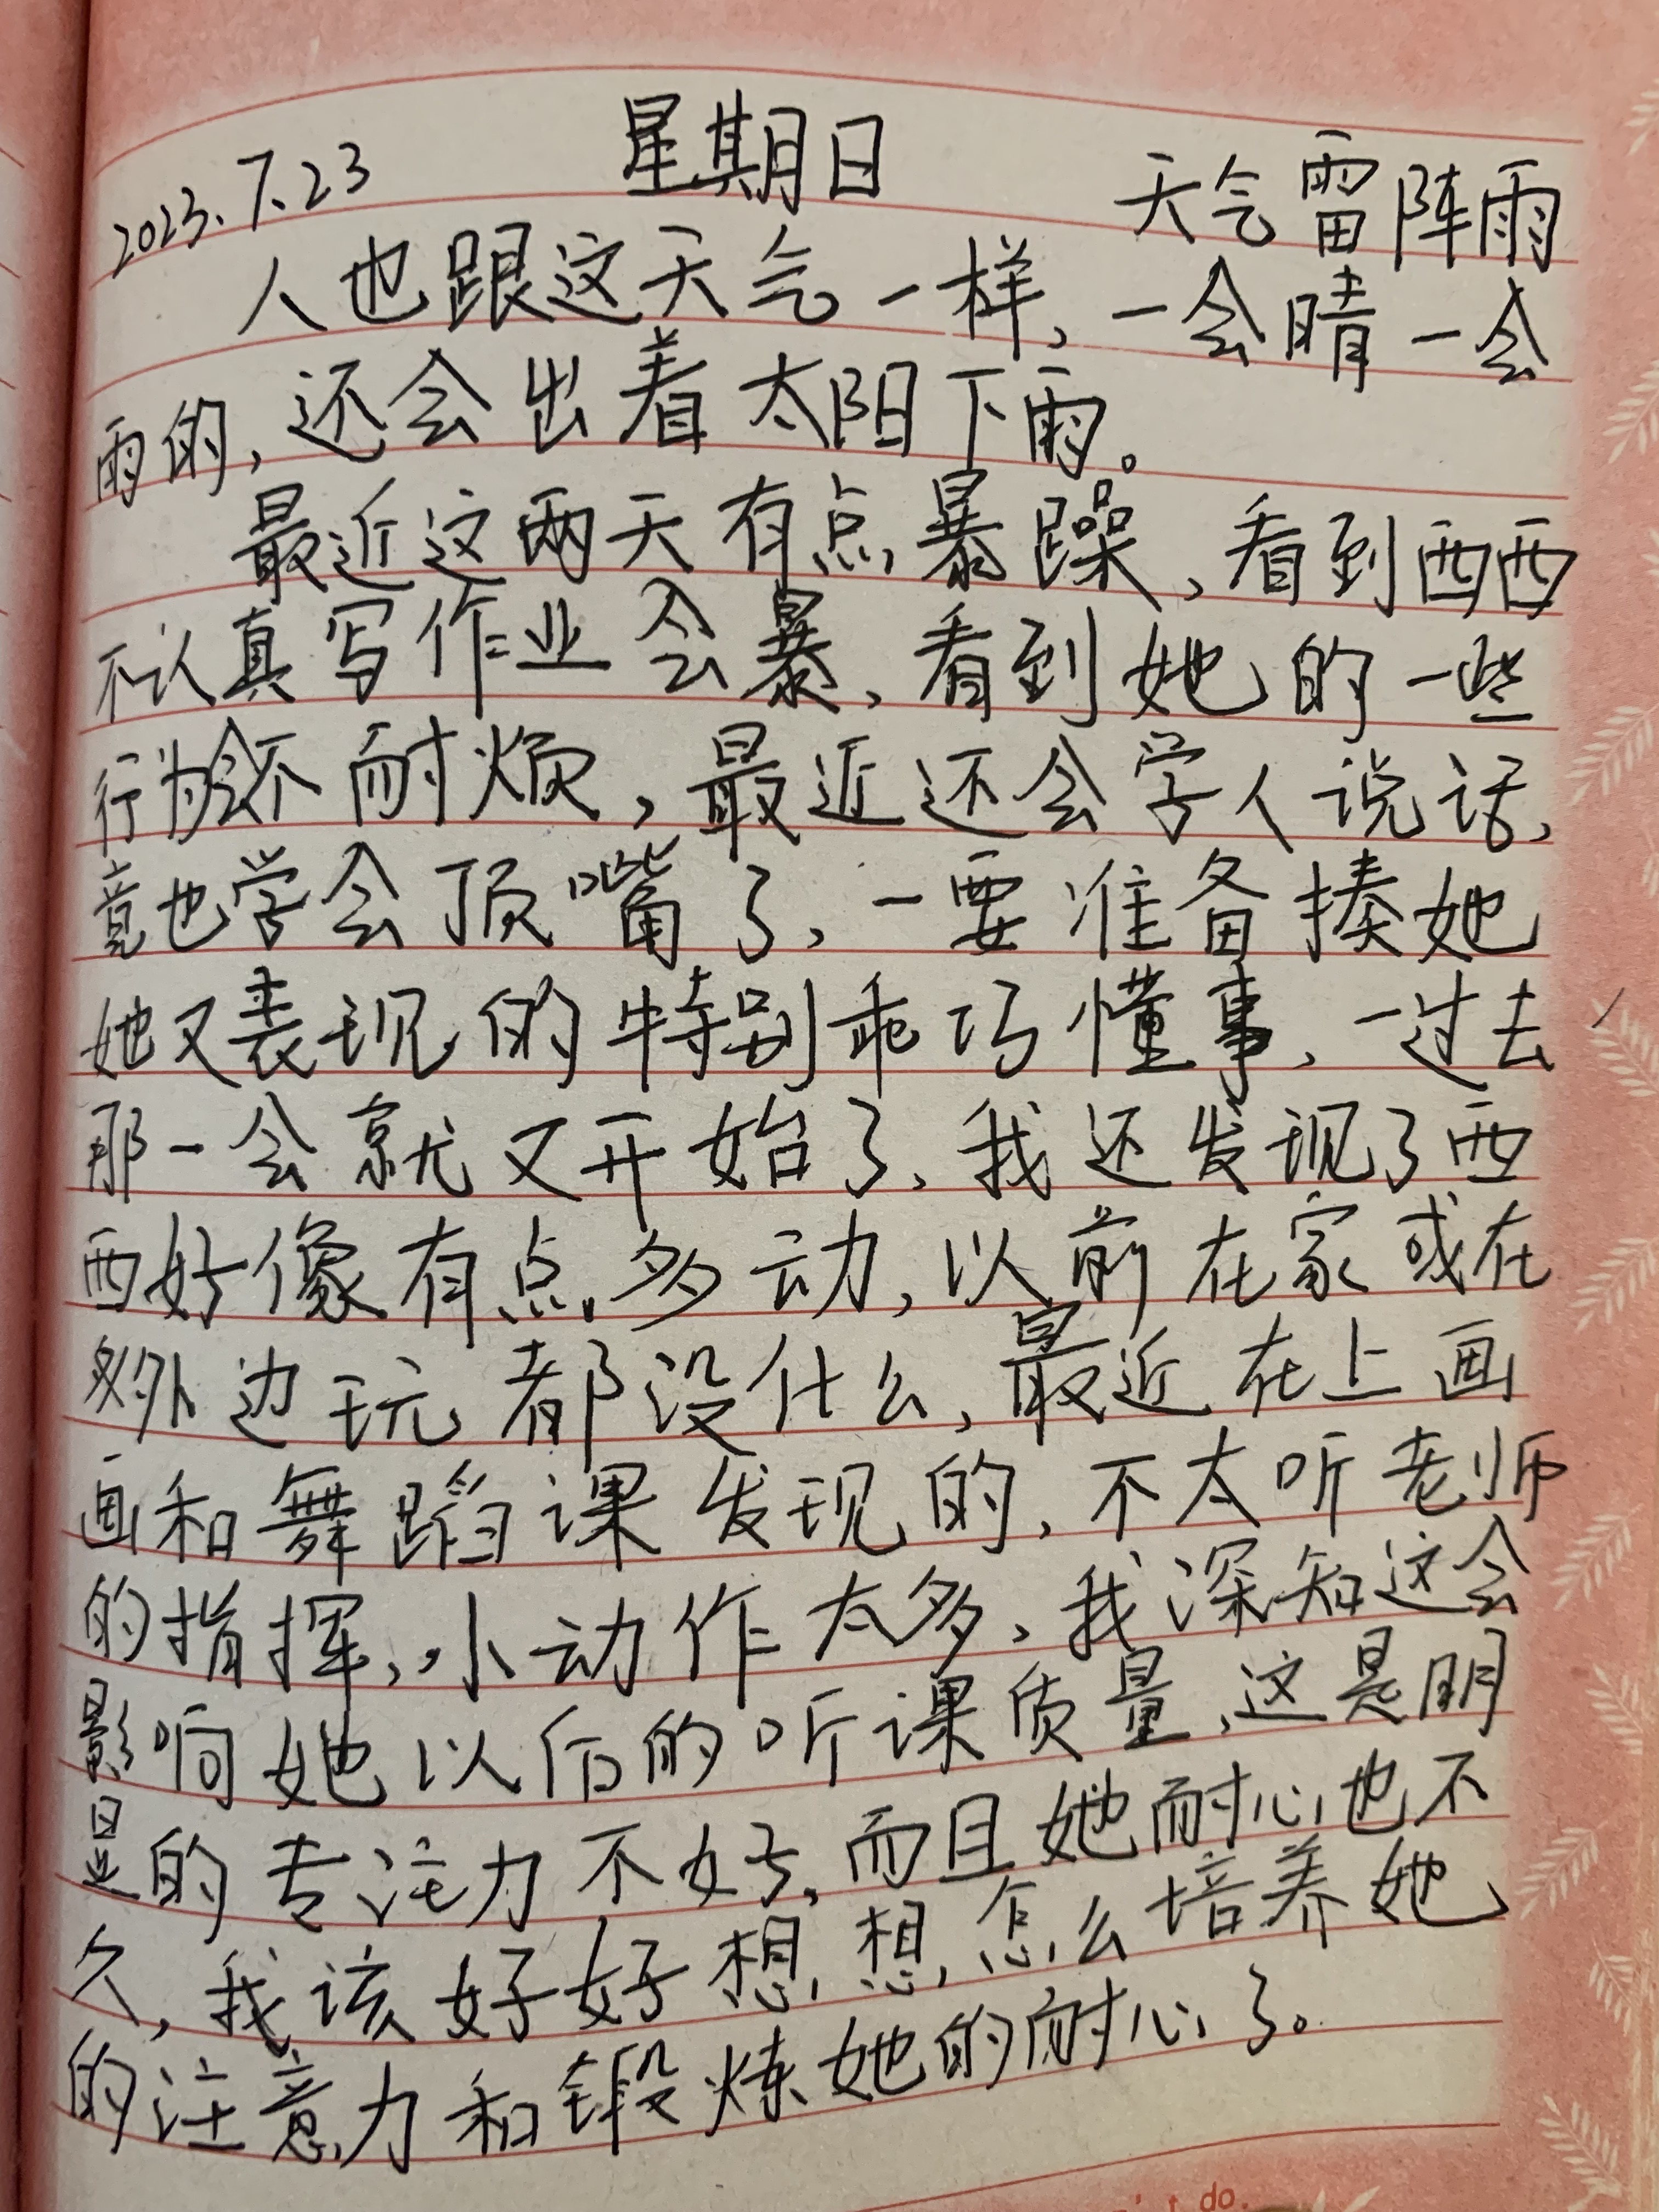 2023.7.23 星期日 天气雷阵雨
人也跟这天气一样、一会晴一会
雨的,还会出着太阳下雨。
最近这两天有点暴躁、看到西西
不认真写作业会暴、看到她的一些
行为会不耐烦,最近还会学人说话、
竟也学会顶嘴了、一要准备揍她
她又表现的特别乖巧懂事、一过去
那一会就又开始了、我还发现了西
西好像有点多动,以前在家或在
外边玩都没什么、最近在上画
画和舞蹈课发现的、不太听老师
的指挥,小动作太多、我深知这会
影响她以后的听课质量、这是明
显的专注力不好、而且她耐心也不
久,我该好好想想怎么培养她
的注意力和锻炼她的耐心了。
t do.